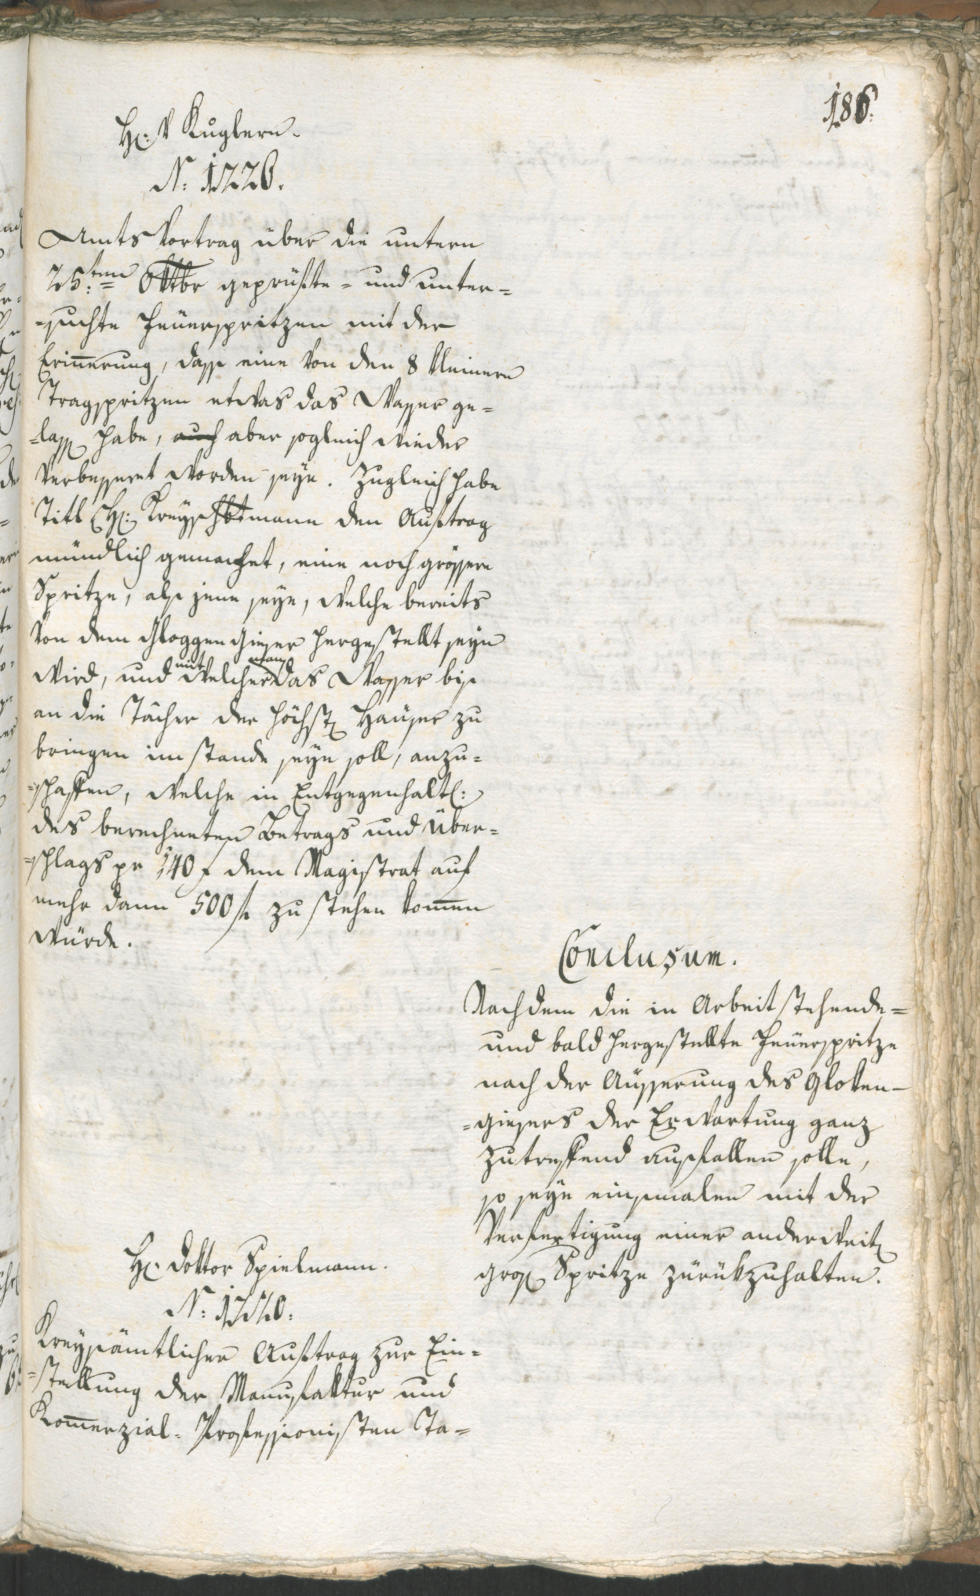 186.
H: v Kuglern.
N: 1226.
Amts Vortrag über die untern
25:ten Oktbr geprüfte- und unter=
=suchte Feüerspritzen mit der
Erinnerung, dass eine von den 8 kleinern
Tragspritzen etwas das Wasser ge=
=lass habe, auch aber sogleich wieder
verbesseret worden seye. Zugleich habe
Titl H: Kreyshbtmann den Auftrag
mündlich gemachet, eine noch grössere
Spritze, als jene seye, welche bereits
von dem Gloggen Gieser hergestellt seyn
wird, und mit welcher man das Wasser bis
an die Tächer der höchst Haüser zu
bringen im stande seyn soll, anzu=
=schaffen, welche in Entgegenhalt:
des berechneten Betrags und Über=
=schlags pr 140 f dem Magistrat auf
mehr dann 500 f zu stehen kommen
würde.
Conclusum.
Nachdem die in Arbeit stehende=
und bald hergestellte Feüerspritze
nach der Aüsserung des Gloken-
=giesers der Erwartung ganz
zutreffend ausfallen solle,
so seye einsmalen mit der
Verfertigung einer anderweit
gros Spritze zürükzuhalten.
H: Doktor Spielmann.
N: 1240.
Kreysämtlicher Auftrag zur Ein=
=stellung der Manufaktur und
Kommerzial- Professionisten Ta=